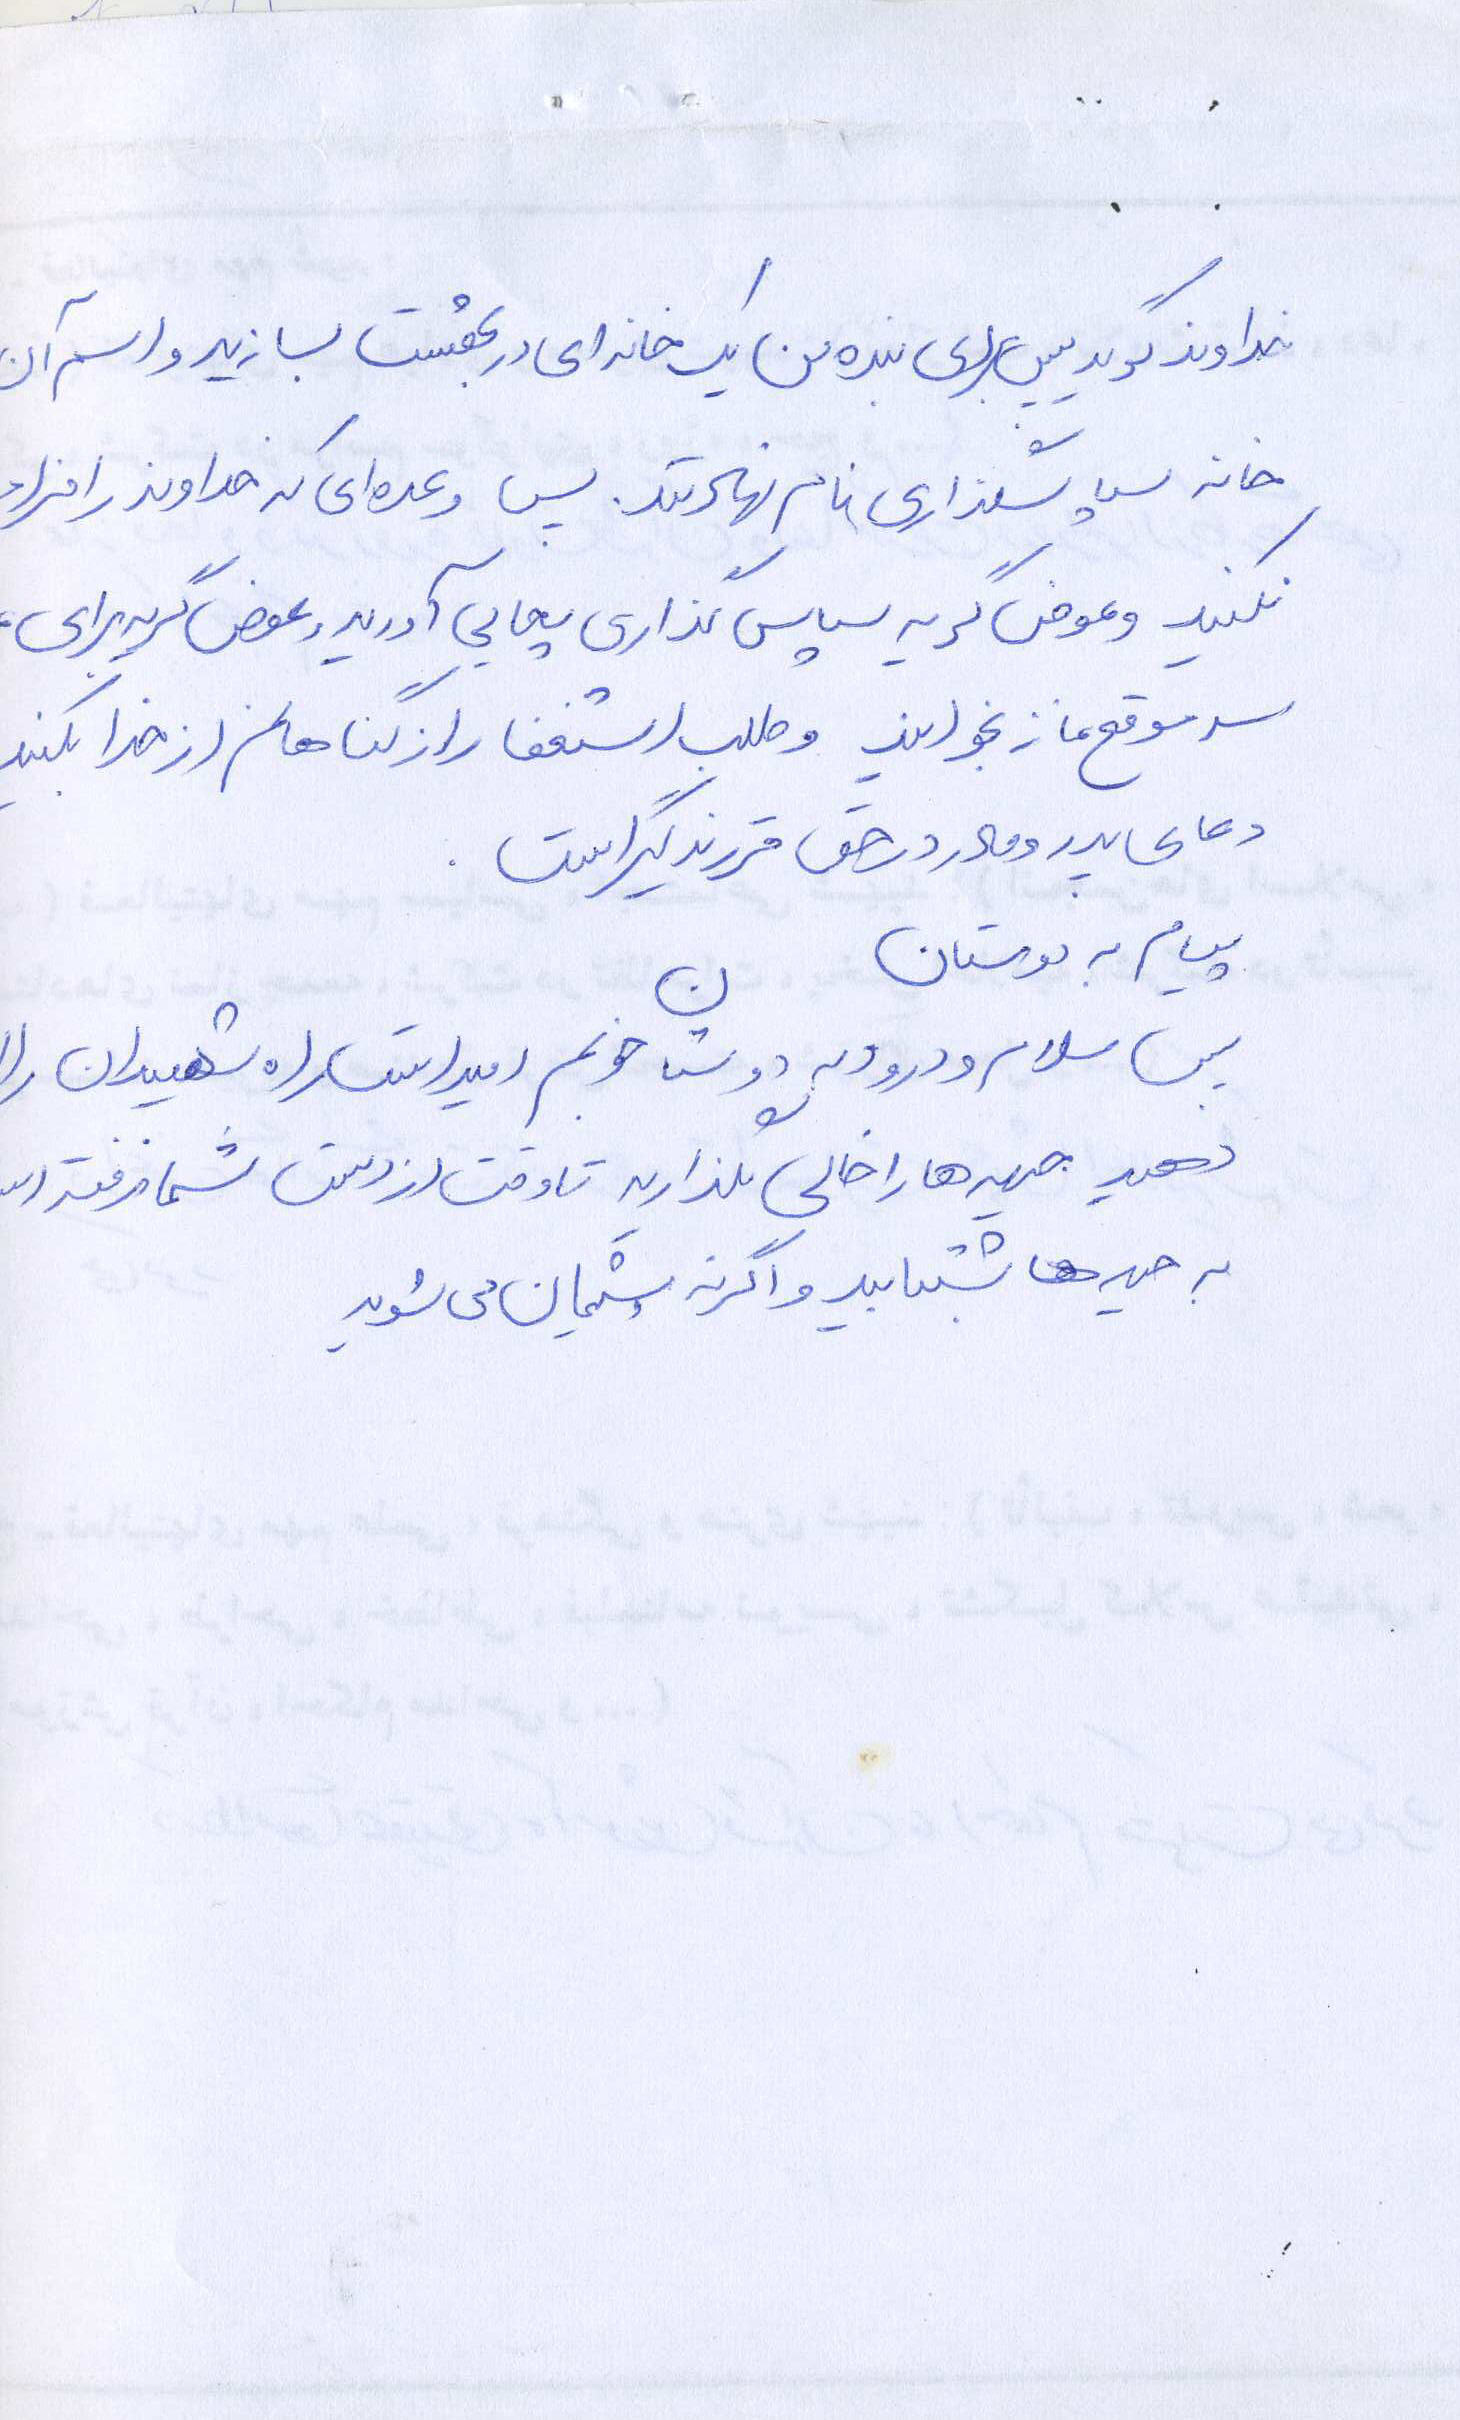 خداوند گوید پس برای بنده من یک خانه‌ای در بهشت بسازید و اسم آن
خانه سپاسگذاری نام نهادند. پس وعده‌ای که خداوند را فرا
نکنید و عوض گریه سپاس گذاری بجایی آورید و عوض گریه برای
سر موقع نماز بخوانید و طلب استغفار از گناهانم از خدا بکنید
دعای پدر و مادر در حق فرزند گیراست.
پیام به دوستان
پس سلام و درود به دوستان خوبم امید است راه شهیدان را
دهید جبهه‌ها را خالی نگذارید تا وقت از دست شما نرفته
به جبهه‌ها بشتابید و اگر نه پشیمان می شوید